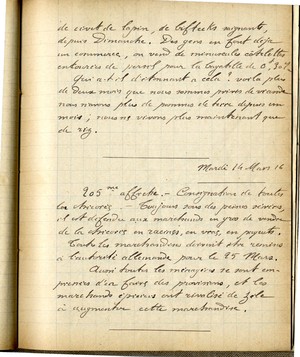 de civet de lapin, de biftecks saignants,
depuis Dimanche. Des gens en font déjà
un commerce, on vend de minuscules côtelettes
entourées de persil pour la bagatelle de 0,30
Qu'a-t-il d'étonnant à cela ? voilà plus
de deux mois que nous sommes privés de viande
nous n'avons plus de pommes de terre depuis un
mois ; nous ne vivons plus maintenant que
de riz.
Mardi 14 Mars 16
205me affiche. - Consignation de toutes
les chicorées. - Toujours sous des peines sévères,
il est défendu aux marchands en gros de vendre
de la chicorée en racines, en vrac, en paquets.
Toutes les marchandises devront être remises
à l'autorité allemande pour le 25 Mars.
Aussi toutes les ménagères se sont em-
pressées d'en faire des provisions, et les
marchands épiciers ont rivalisé de zèle
à augmenter cette marchandise.